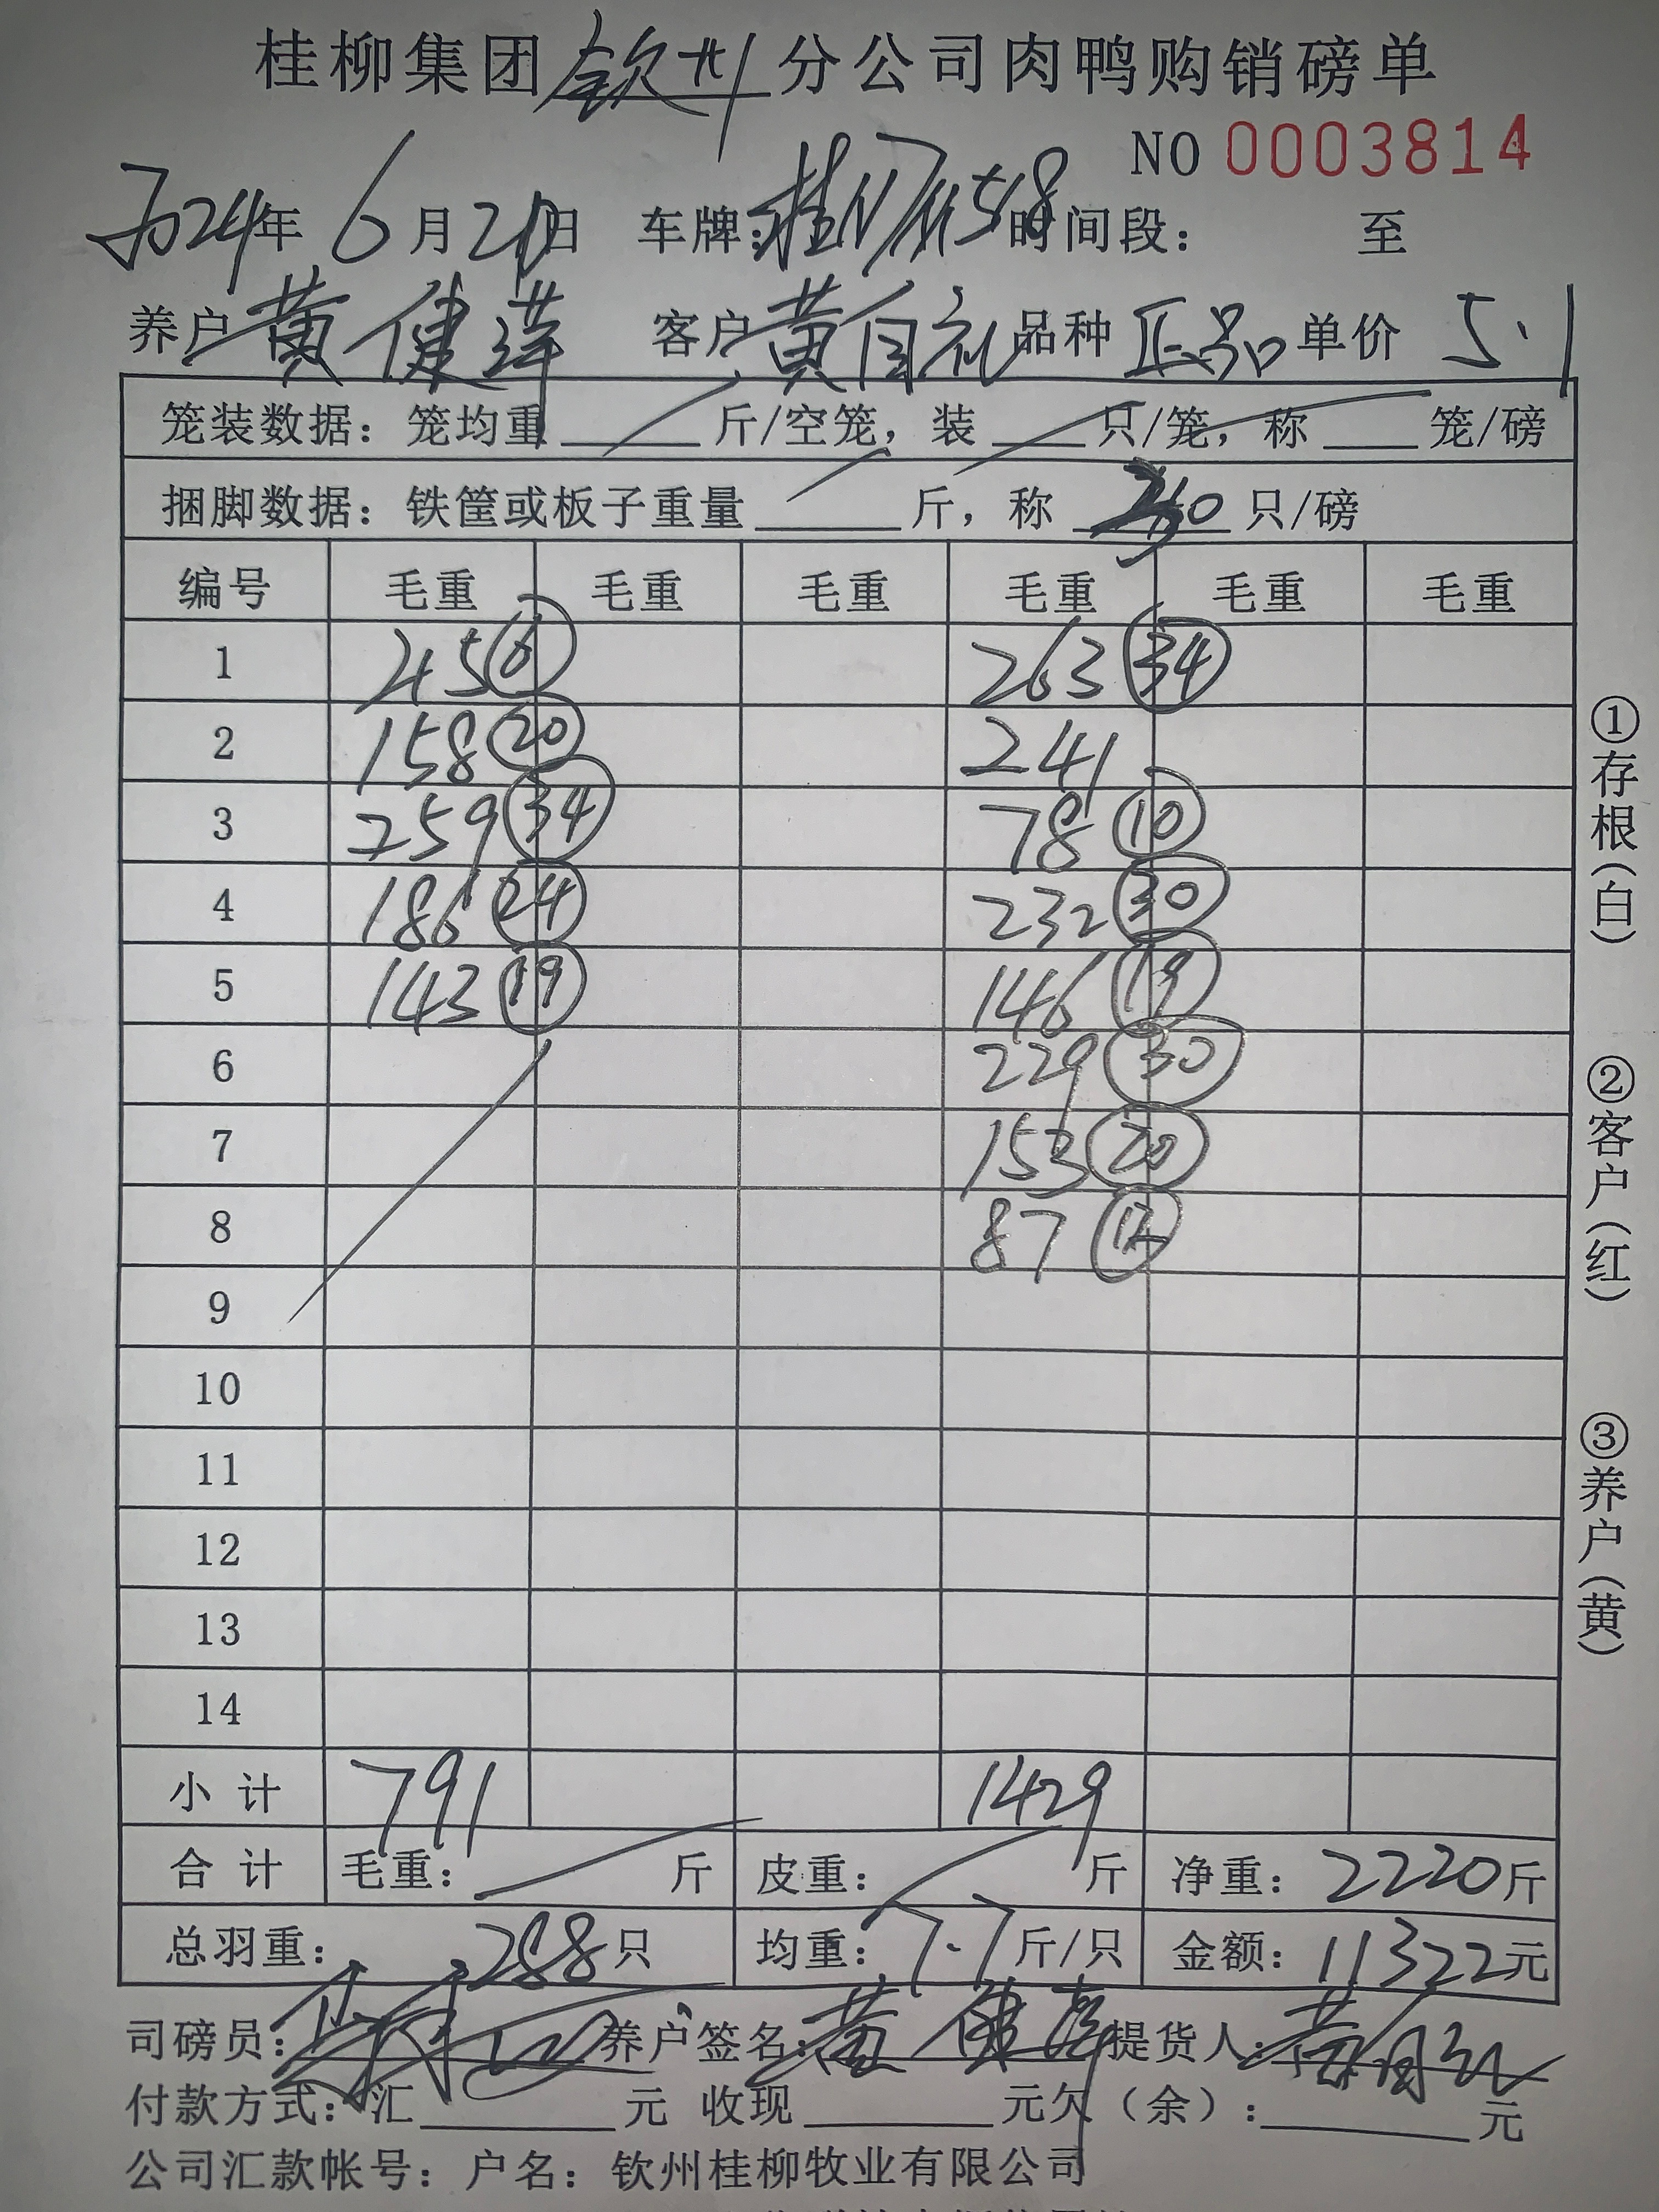 桂柳集团钦州分公司肉鸭购销磅单
NO 0003814
2024年 6月21日 车牌: 时间段: 至
养户 黄健萍 客户 黄自礼 品种 正品 单价 5.1
笼装数据: 笼均重 斤/空笼, 装 只/笼, 称 笼/磅
捆脚数据: 铁筐或板子重量 斤, 称 只/磅
编号 毛重 毛重 毛重 毛重 毛重 毛重
1 45 ⑥ 263 34
2 158 ⑳ 241
3 259 34 78 ⑩
4 186 24 232 30
5 143 ⑲ 146 ⑲
6 229 30
7 153 ⑳
8 87 ⑫
9
10
11
12
13
14
小计 791 1429
合计 毛重: 斤 皮重: 斤 净重: 2220斤
总羽重: 288只 均重: 7.7斤/只 金额: 11322元
司磅员: 养户签名: 黄健萍 提货人: 黄自礼
付款方式: 汇 元 收现 元欠(余): 元
公司汇款帐号: 户名: 钦州桂柳牧业有限公司
①存根(白)
②客户(红)
③养户(黄)